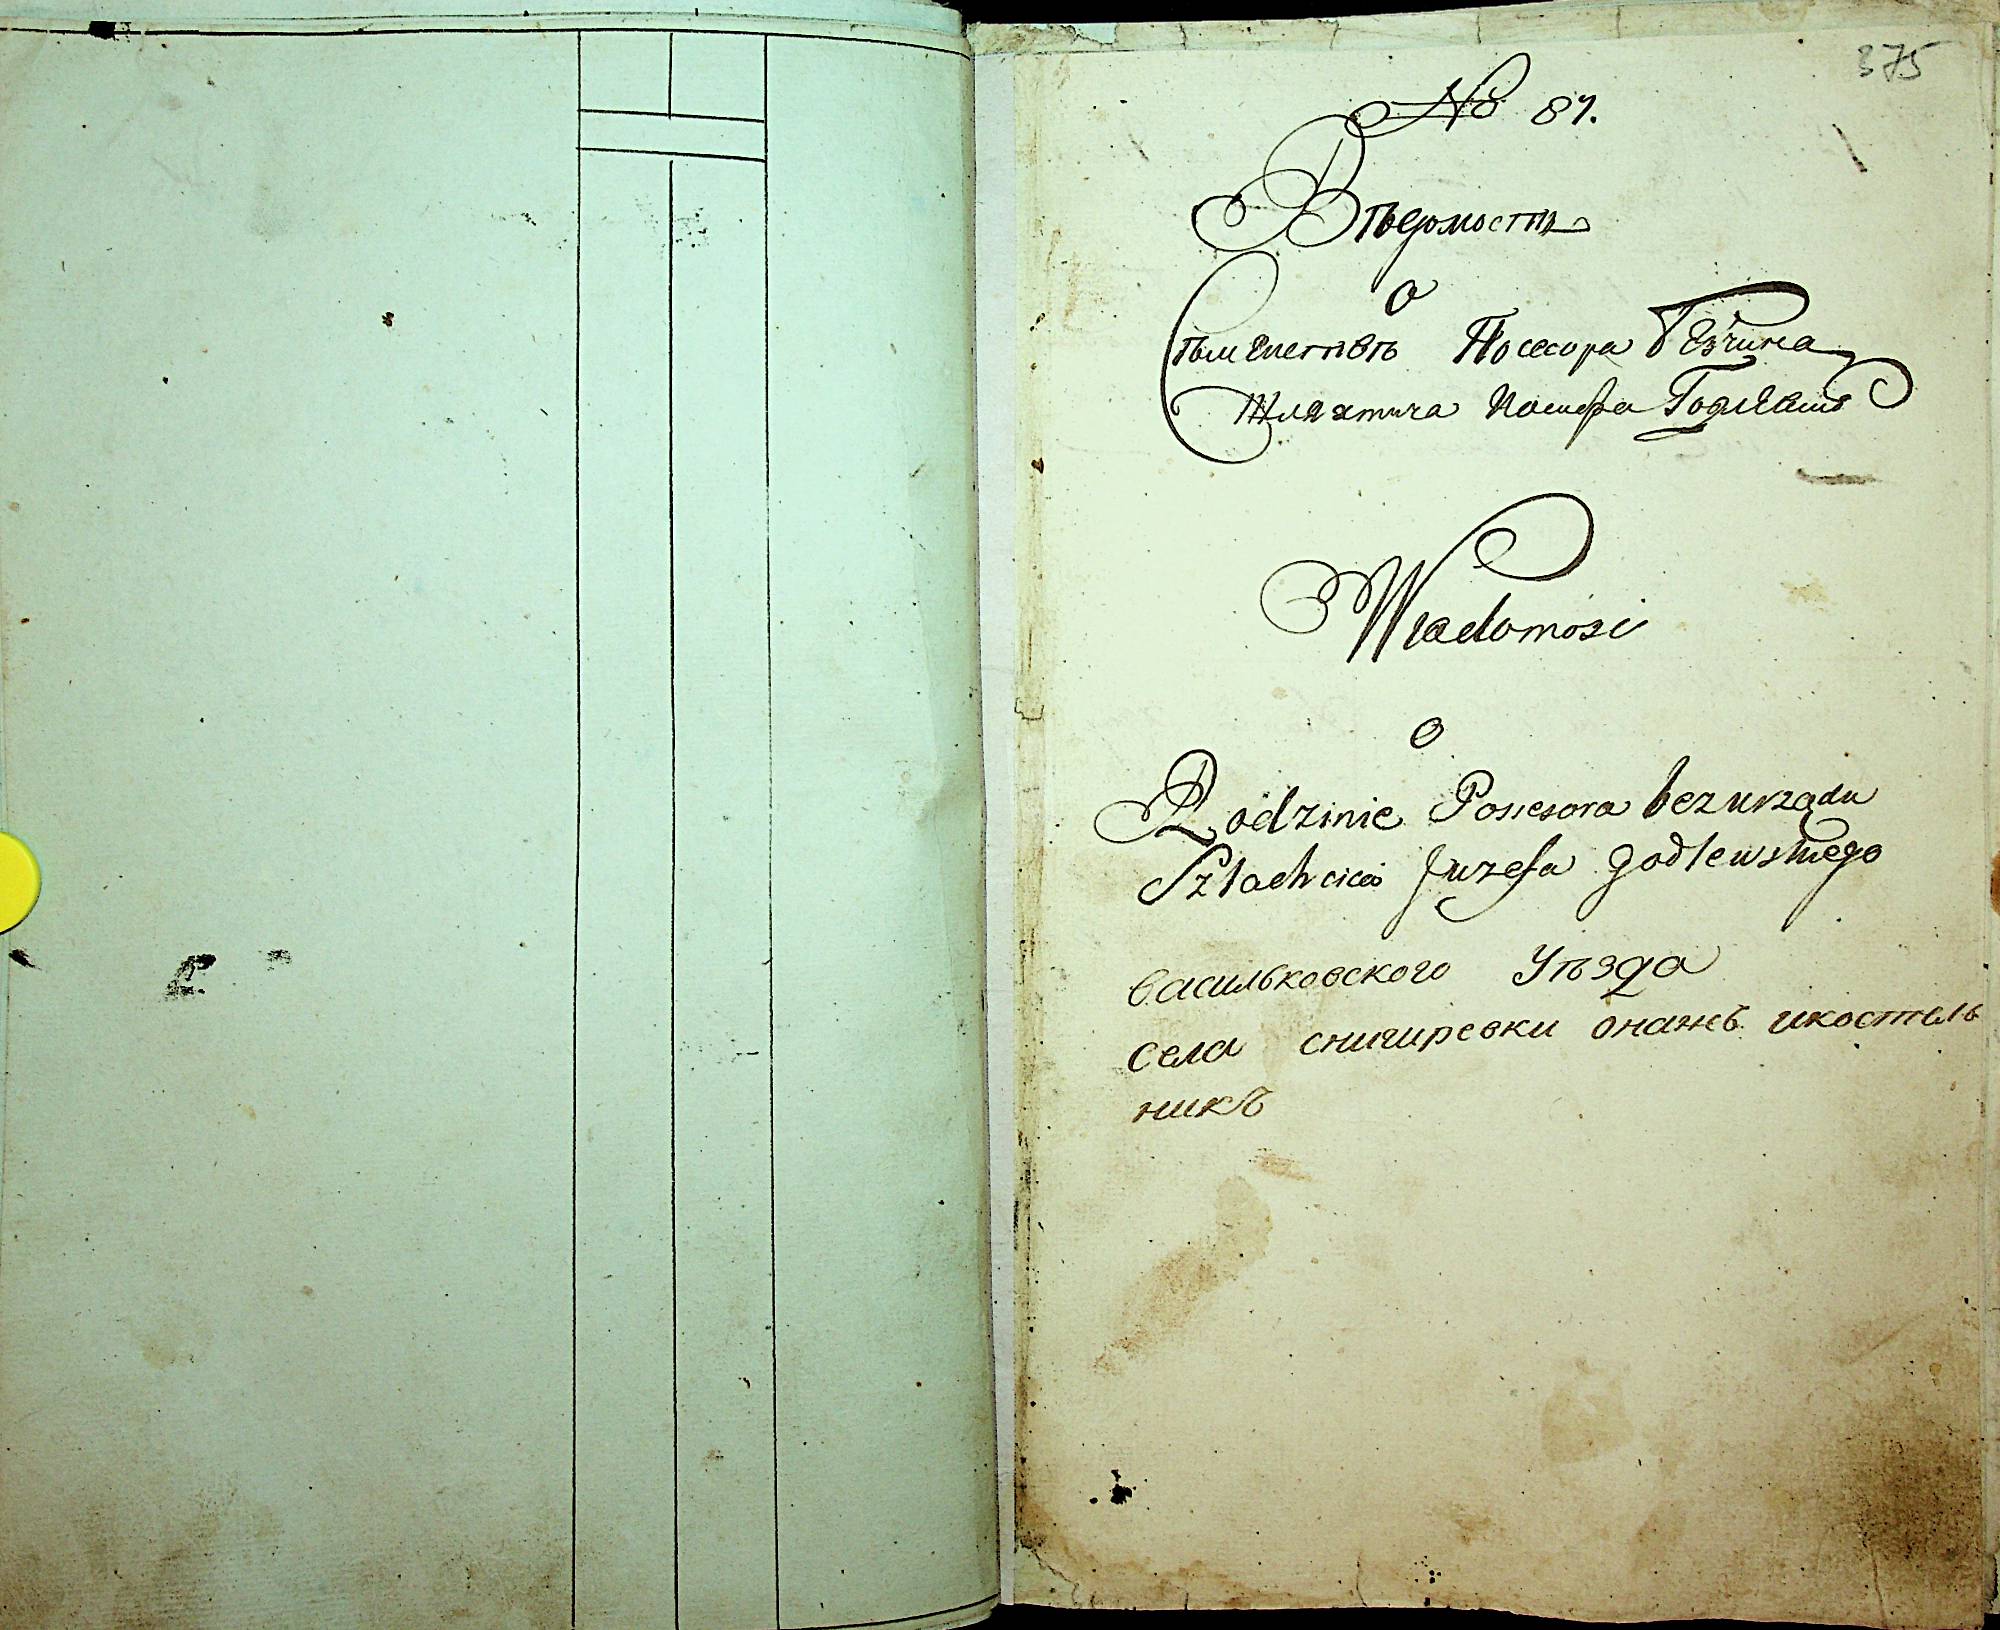 375
№ 87.
Вѣдомость
О
Сѣмействѣ Посесора Безчина
Шляхтича Иосифа Годлевско
Wiadomość
O
Rodzinie Possesora bez urzędu
Szlachcica Juzefa Godlewskiego
Васильковского Уѣзда
Села снигиревки онажъ икостель
никъ